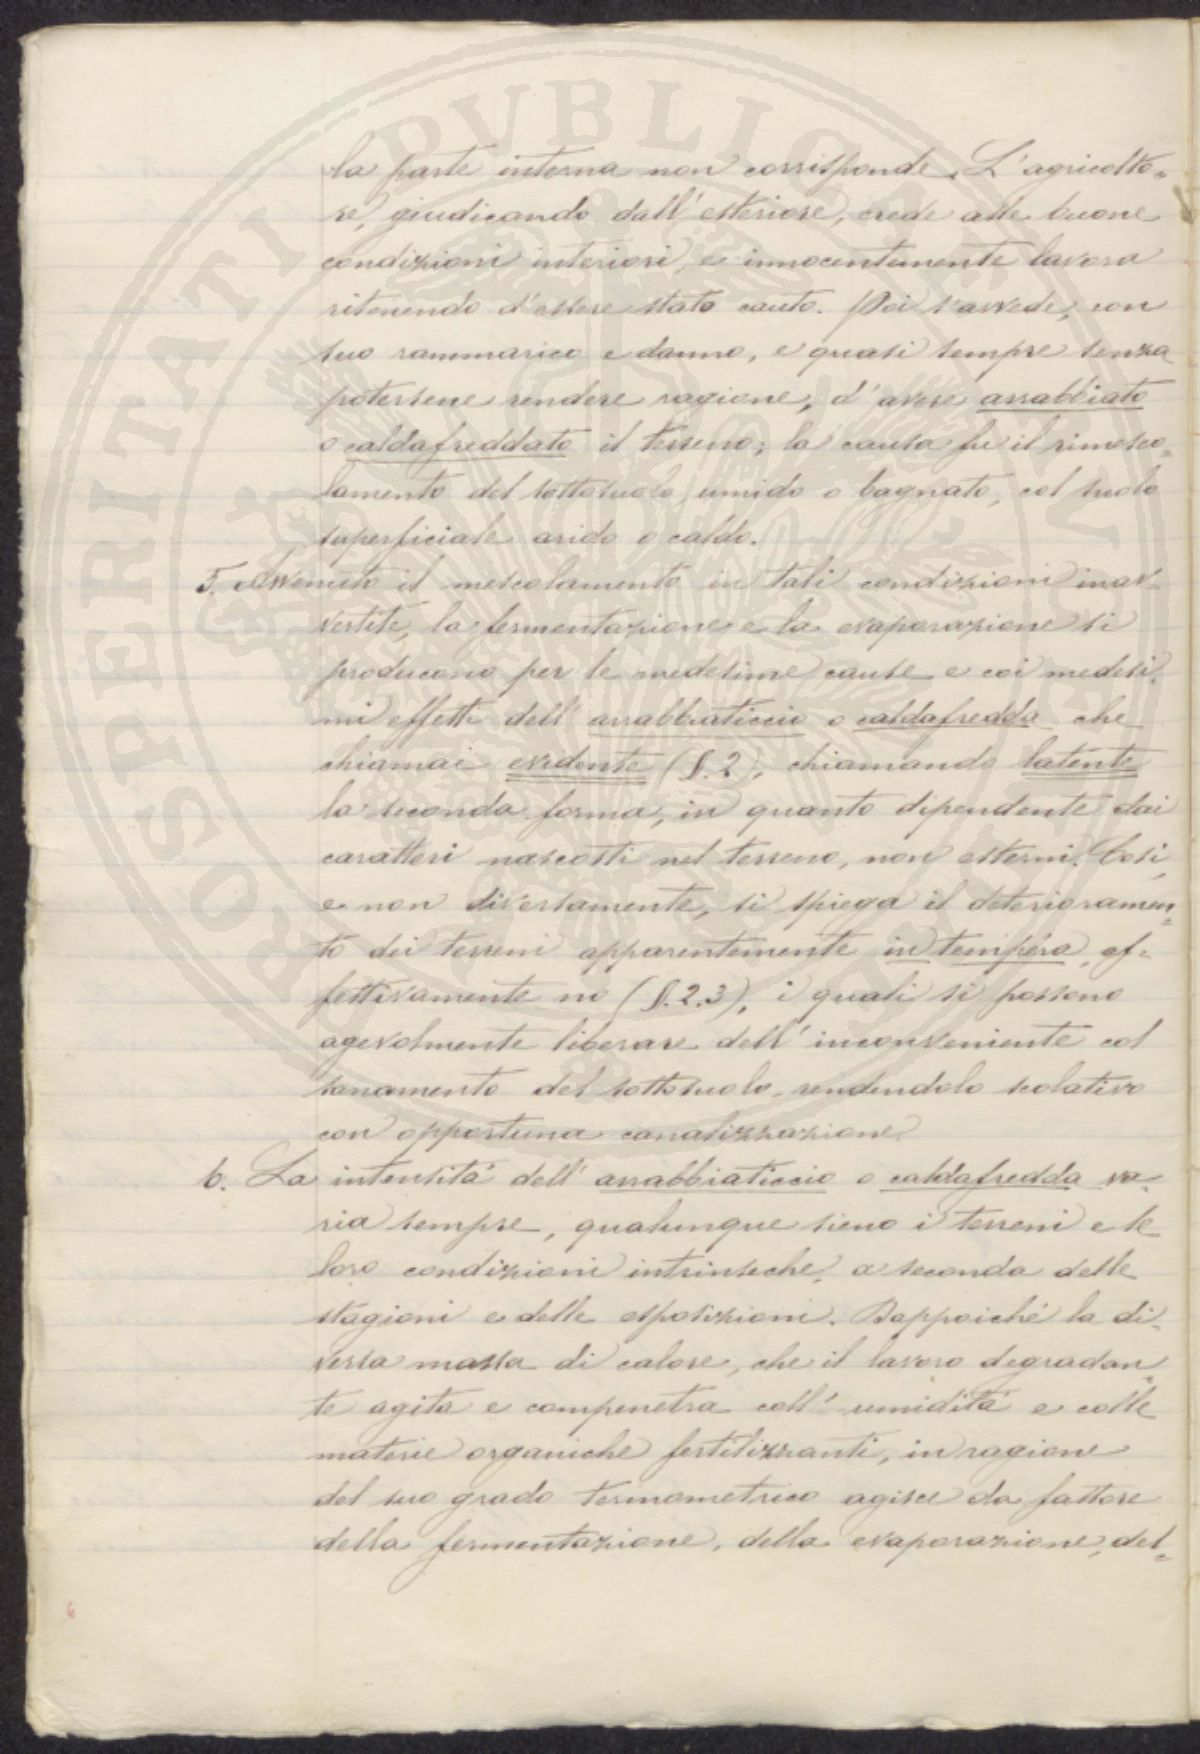 la parte interna non corrisponde. L'agricolto=
re, giudicando dall'esteriore, crede alle buone
condizioni interiori, e innocentemente lavora
ritenendo d'essere stato cauto. Poi s'avvede, con
suo rammarico e danno, e quasi sempre senza
potersene rendere ragione, d'avere arrabbiato
o caldafreddato il terreno; la causa fu il rimesco=
lamento del sottosuolo, umido o bagnato, col suolo
superficiale arido o caldo.
5. Avvenuto il mescolamento in tali condizioni inav=
vertite, la fermentazione e la evaporazione si
producono per le medesime cause e coi medesi=
mi effetti dell'arrabbiaticcio o caldafredda che
chiamai evidente (§.2), chiamando latente
la seconda forma, in quanto dipendente dai
caratteri nascosti nel terreno, non esterni. Così,
e non diversamente, si spiega il deterioramen=
to dei terreni apparentemente in tempéra, ef=
fettivamente no (§.2.3), i quali si possono
agevolmente liberare dell'inconveniente col
sanamento del sottosuolo, rendendolo scolativo
con opportuna canalizzazione.
6. La intensità dell'arrabbiaticcio o caldafredda va=
ria sempre, qualunque sieno i terreni e le
loro condizioni intrinseche, a seconda delle
stagioni e delle esposizioni. Dappoiché la di=
versa massa di calore, che il lavoro degradan=
te agita e compenetra coll'umidità e colle
materie organiche fertilizzanti, in ragione
del suo grado termometrico agisce da fattore
della fermentazione, della evaporazione, del=
6
PROSPERITATI PVBLICAE